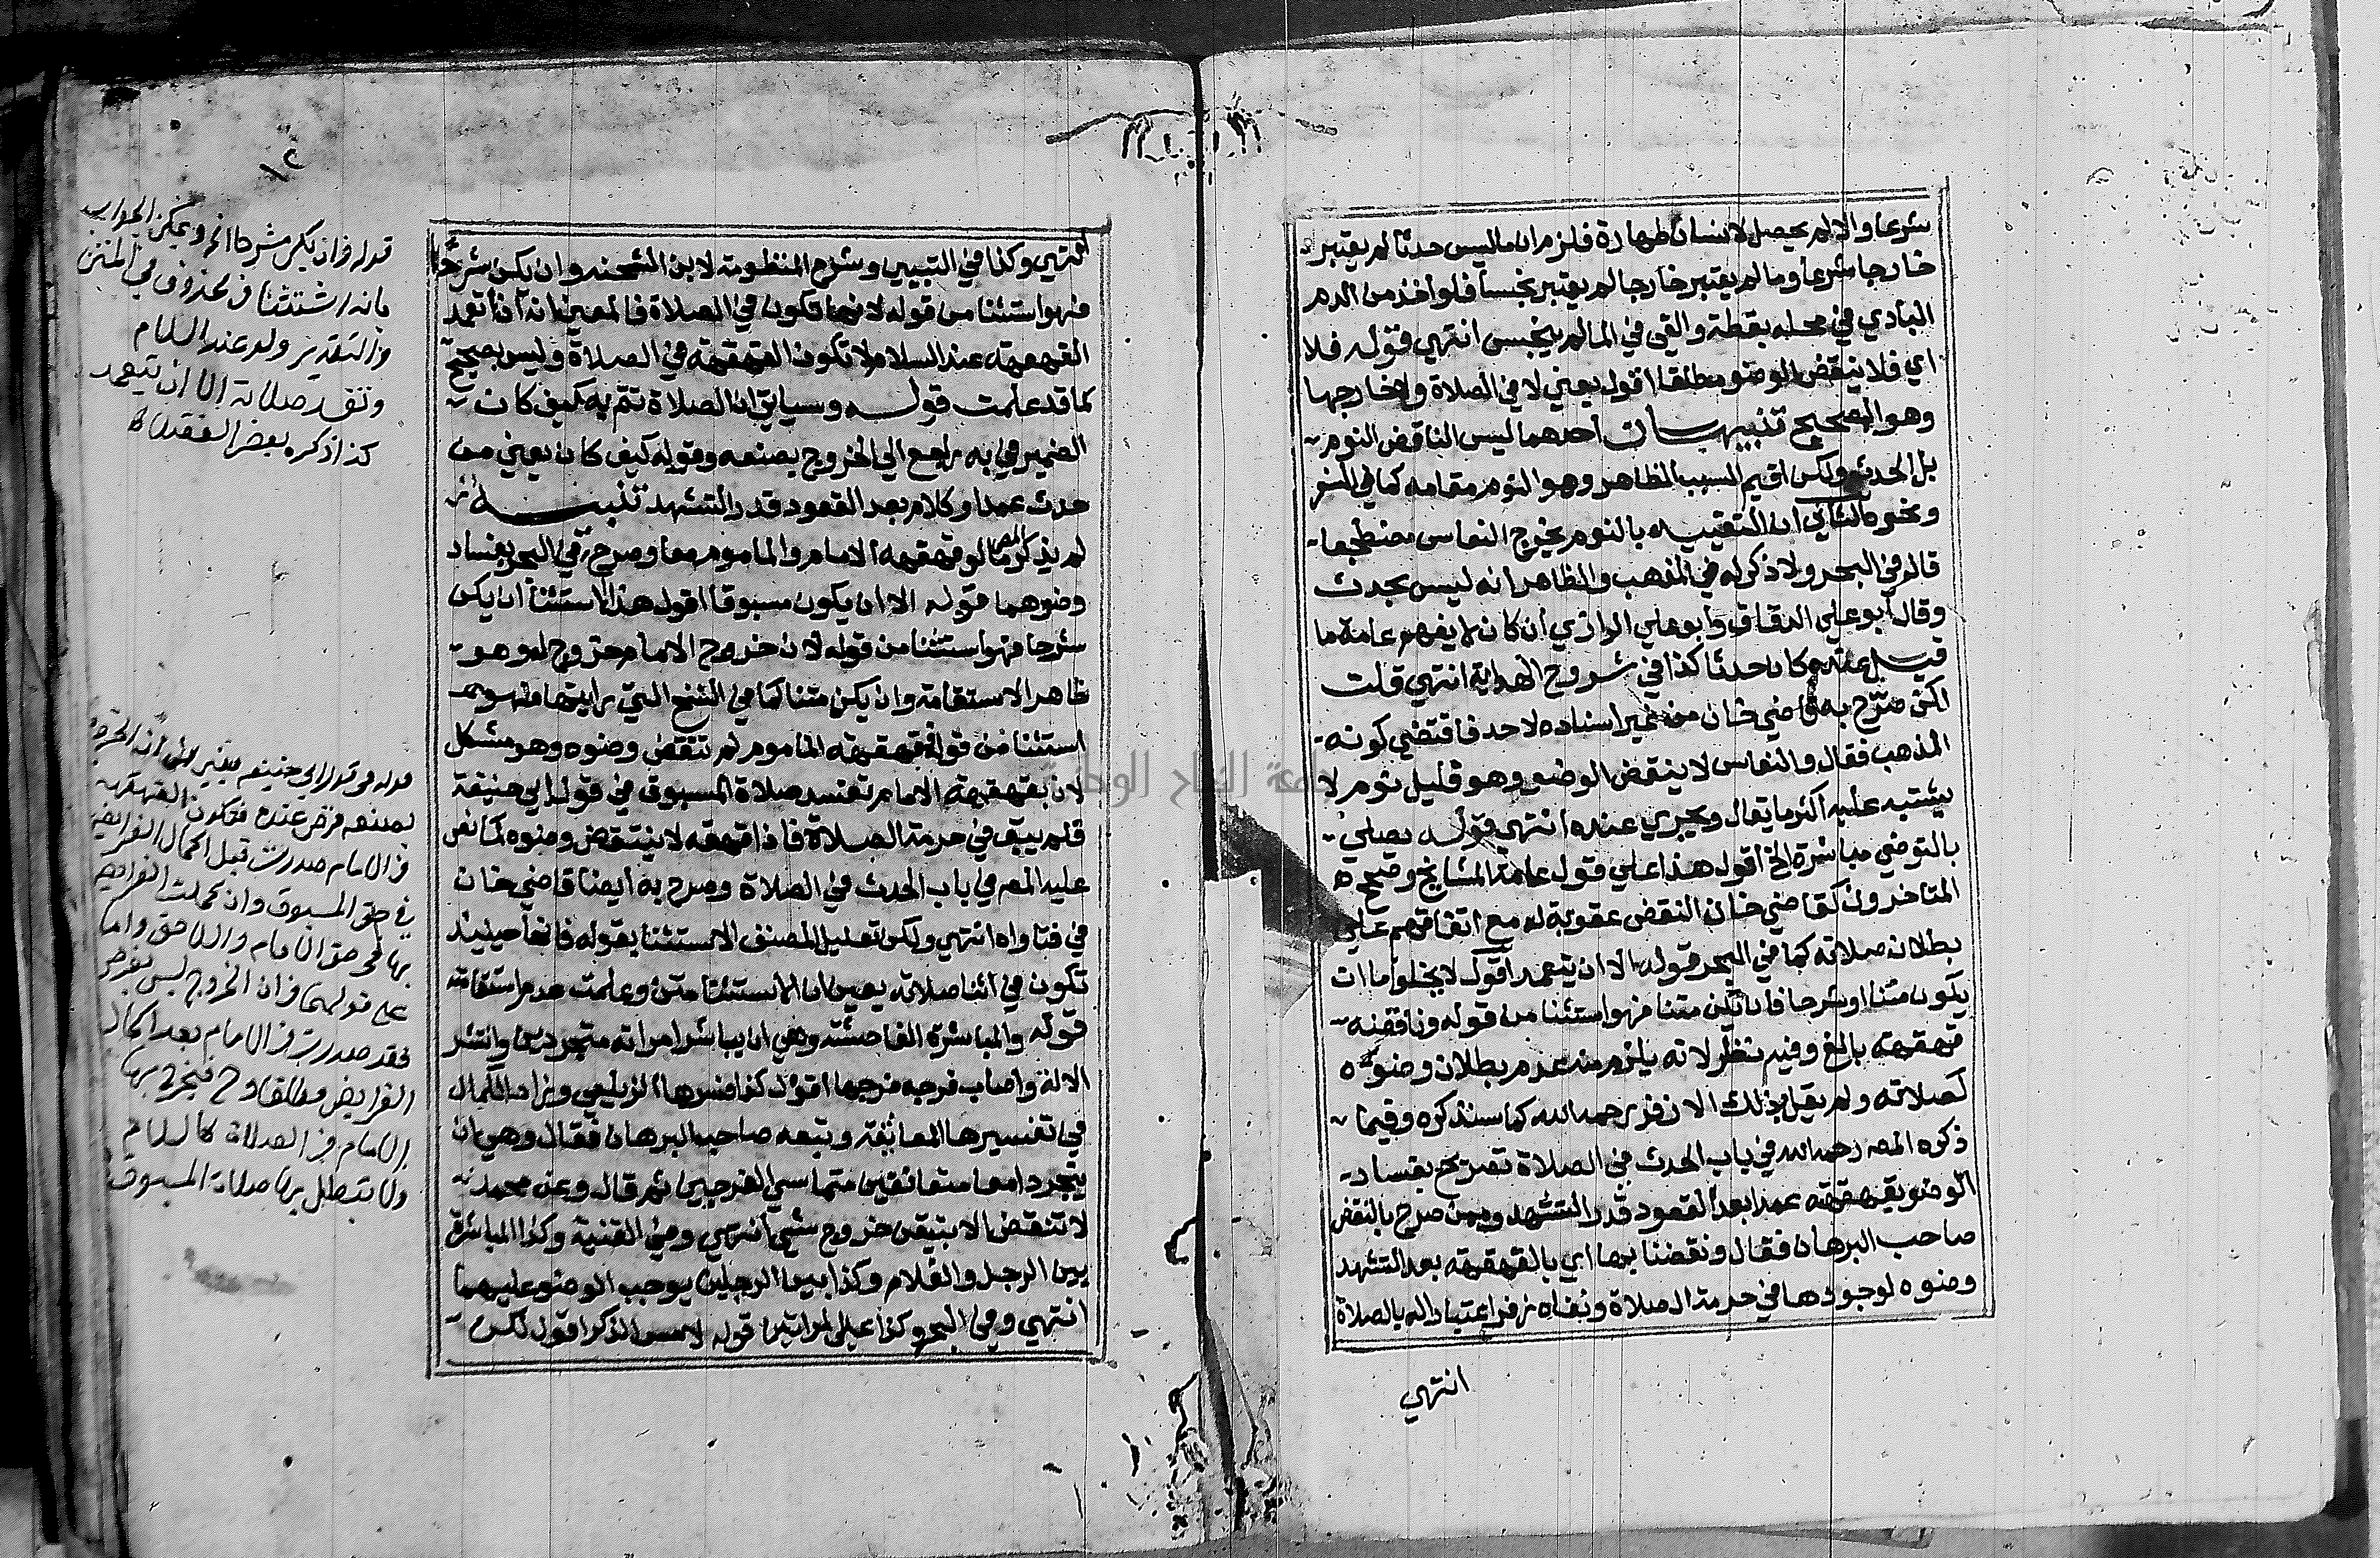 شرعا والا لم يحصل لانسان طهارة فلزم ان ما ليس حدثا لم يعتبر
خارجا شرعا وما لم يعتبر خارجا لم يعتبر نجسا فلو اخذ من الدم
البادي في محله بقطنة والقي في الما لم يتنجس انتهي قوله فلا
اي فلا ينقض الوضو مطلقا اقول يعني لا في الصلاة ولا خارجها
وهو الصحيح تنبيهات احدهما ليس الناقض النوم
بل الحدث ولكن اقيم السبب الظاهر وهو النوم مقامه كما في السفر
ونحوه الثاني ان التقييد بالنوم يخرج النعاس مضطجعا
قال في البحر ولا ذكر له في المذهب والظاهر انه ليس بحدث
وقال ابو علي الدقاق وابو علي الرازي ان كان لا يفهم عامة ما
قيل عنده كان حدثا كذا في شروح الهداية انتهي قلت
لكن صرح به قاضي خان من غير اسناده لاحد فاقتضي كونه
المذهب فقال والنعاس لا ينقض الوضو وهو قليل نوم لا
يشتبه عليه اكثر ما يقال ويجري عنده انتهي قوله يصلي
بالتوضي مباشرة الخ اقول هذا علي قول عامة المشايخ وصححه
المتاخرون كقاضي خان النقض عقوبة له مع اتفاقهم علي
بطلان صلاته كما في البحر قوله الا ان يتعمد اقول لا يخلو اما ان
يكون متنا او شرحا فان يكن متنا فهو استثنا من قوله وناقضه
قهقهة بالغ وفيه نظر لانه يلزم منه عدم بطلان وضوه
كصلاته ولم يقل بذلك الا زفر رحمه الله كما سنذكره وفيما
ذكره المص رحمه الله في باب الحدث في الصلاة تصريح بفساد
الوضو بقهقهته عمدا بعد القعود قدر التشهد وممن صرح بالنقض
صاحب البرهان فقال ونقضنا بها اي بالقهقهة بعد التشهد
وضوه لوجودها في حرمة الصلاة ونفاه زفر اعتبارا له بالصلاة
انتهي
١٢
انتهي وكذا في التبيين وشرح المنظومة لابن الشحنه وان يكن شرحا
فهو استثنا من قوله لانها تكون في الصلاة فالمعني انه اذا تعمد
القهقهة عند السلام لا تكون القهقهة في الصلاة وليس بصحيح
كما قد علمت قوله وسياتي ان الصلاة تتم به كيف كان
الضمير في به راجع الي الخروج بصنعه وقوله كيف كان يعني من
حدث عمد او كلام بعد القعود قدر التشهد تنبيه
لم يذكر المص ما لو قهقهه الامام والماموم معا وصرح في البحر بفساد
وضوهما قوله الا ان يكون مسبوقا اقول هذا الاستثنا ان يكن
شرحا فهو استثنا من قوله لان خروج الامام خروج له وهو
ظاهر الاستقامة وان يكن متنا كما في النسخ التي رايتها فهو
استثنا من قوله قهقهة الماموم لم تنقض وضوه وهو مشكل
لان بقهقهة الامام تفسد صلاة المسبوق في قول ابي حنيفة
فلم يبق في حرمة الصلاة فاذا قهقه لا ينتقض وضوه كما نص
عليه المص في باب الحدث في الصلاة وصرح به ايضا قاضي خان
في فتاواه انتهي ولكن تعليل المصنف الاستثنا بقوله فانها حينيذ
تكون في اثنا صلاته يعين ان الاستثنا متن وعلمت عدم استقامته
قوله والمباشرة الفاحشة وهي ان يباشر امراته متجردين وانتشر
الالة واصاب فرجه فرجها اقول كذا فسرها الزيلعي وزاد الكمال
في تفسيرها المعانقة وتبعه صاحب البرهان فقال وهي ان
يتجردا معا متعانقين متماسي الفرجين ثم قال وعن محمد
لا تنقض الا بتيقن خروج شي انتهي وفي القنية وكذا المباشرة
بين الرجل والغلام وكذا بين الرجلين يوجب الوضو عليهما
انتهي وفي البحر وكذا علي المراتين قوله لامس الذكر اقول لكن
قوله فان يكن شرحا الخ ويمكن الجواب
بانه استثنا من محذوف في المتن
والتقدير ولو عند السلام
وتفسد صلاته الا ان يتعمد
كذا ذكره بعض الفضلا
قوله في قول ابي حنيفة
بصنعه فرض عنده فتكون القهقهة
من الامام صدرت قبل اكمال الفرايض
في حق المسبوق وان كملت الفرايض
بها في حق الامام واللاحق واما
علي قولهما فان الخروج ليس بفرض
فقد صدرت من الامام بعد اكمال
الفرايض مطلقا وح فيخرج بها
الامام من الصلاة كالسلام
ولا تبطل بها صلاة المسبوق